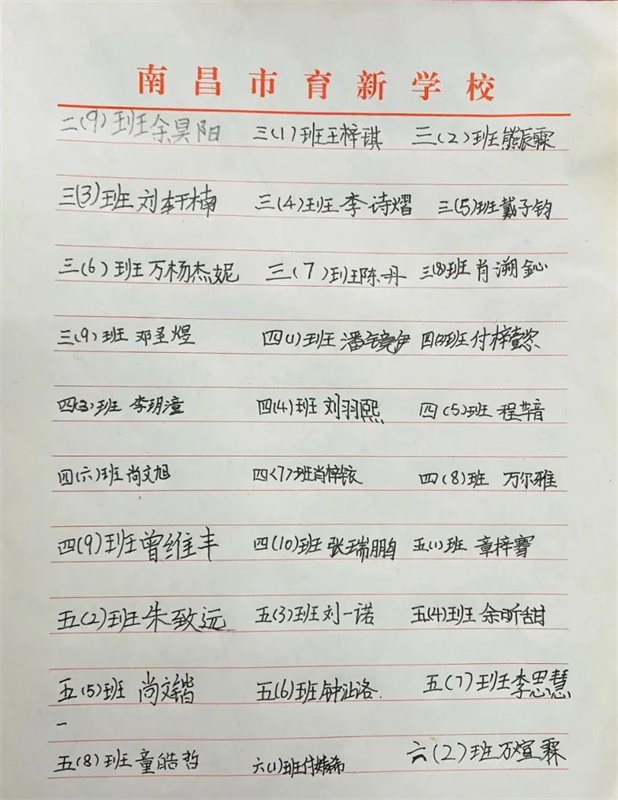 南昌市育新学校
二(9)班余昊阳 三(1)班王梓琪 三(2)班熊辰霖
三(3)班刘轩楠 三(4)班李诗熠 三(5)班戴子钧
三(6)班万杨杰妮 三(7)班陈丹 三(8)班肖溯鈊
三(9)班邓圣煜 四(1)班潘镜伊 四(2)班付梓懿
四(3)班李玥潼 四(4)班刘羽熙 四(5)班程韵
四(六)班尚文旭 四(7)班肖梓铱 四(8)班 万尔雅
四(9)班曾维丰 四(10)班张瑞鹏 五(1)班 章梓骞
五(2)班朱致远 五(3)班刘一诺 五(4)班余昕甜
五(5)班 尚文锴 五(6)班钟沾洛 五(7)班李思慧
五(8)班童皓哲 六(1)班付婧希 六(2)班万煊霖